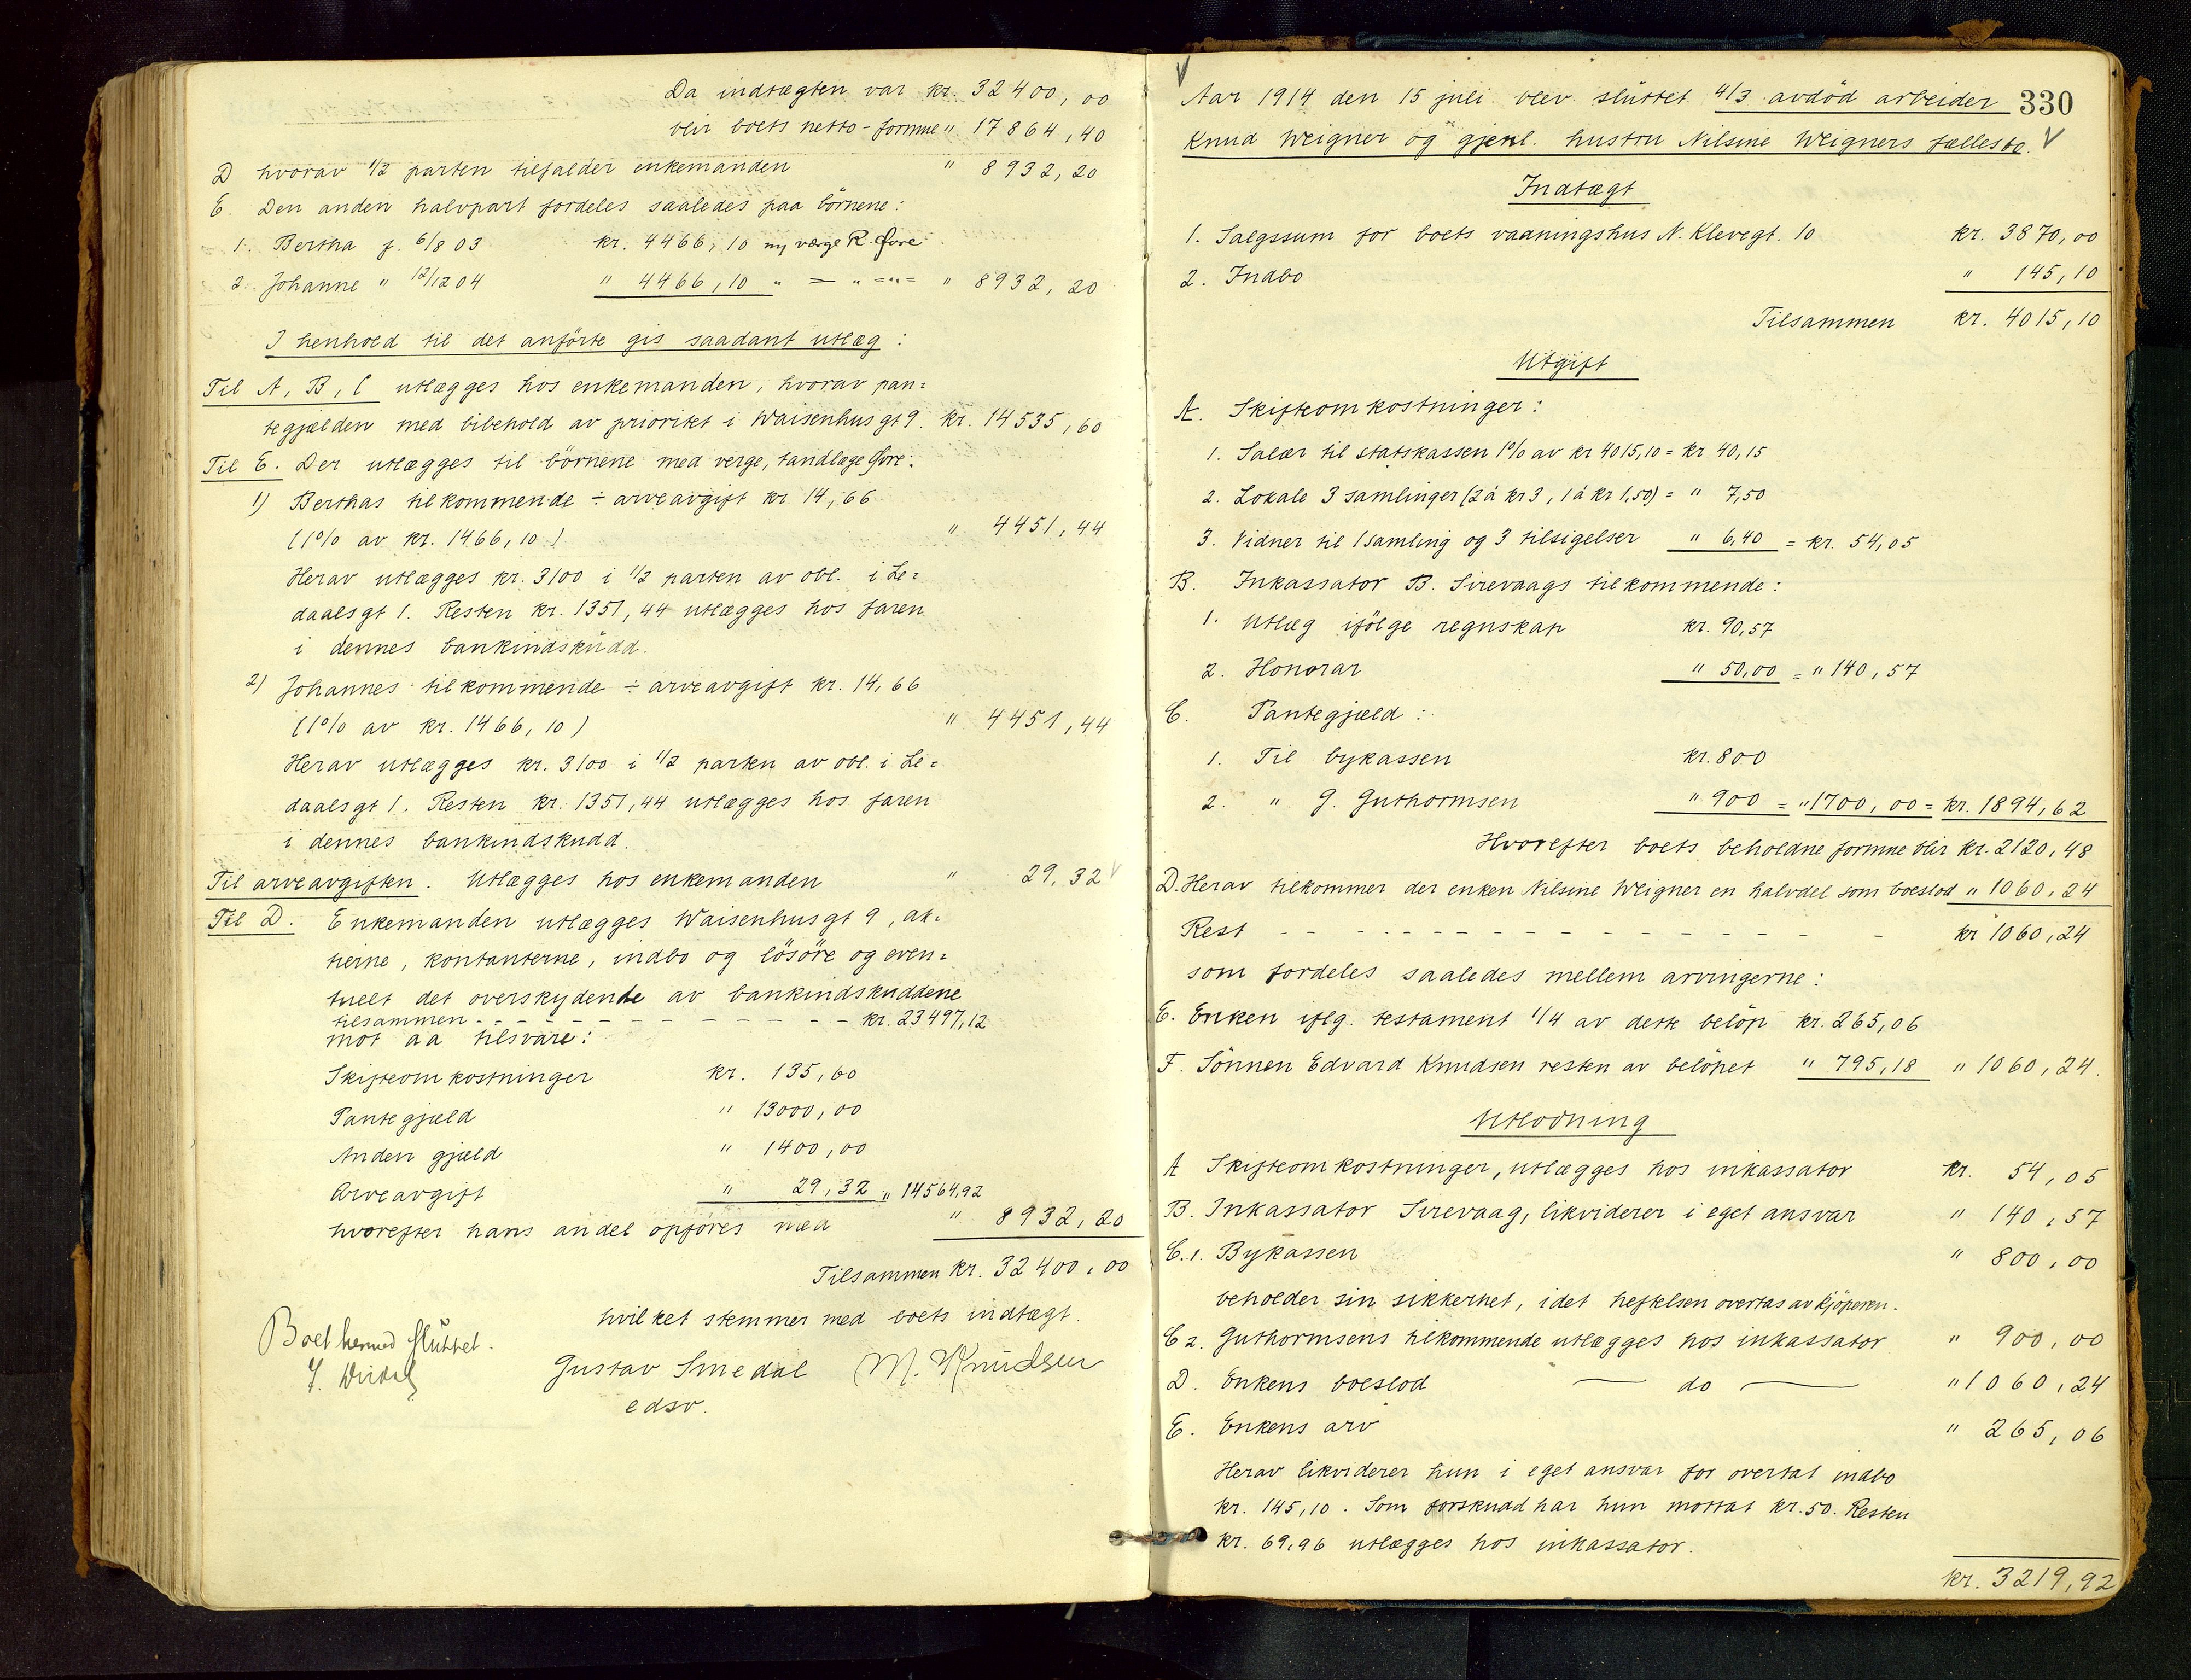 Da indtægten var kr. 32400,00
blir boets netto-formue " 17864,40
D hvorav 1/2 parten tilfalder enkemanden " 8932,20
E. Den anden halvpart fordeles saaledes paa börnene:
1. Bertha f. 6/8 03 kr. 4466,10 ny værge R. Øvre
2. Johanne " 12/12 04 " 4466,10 " = " =„= " 8932,20
I henhold til det anförte gis saadant utlæg:
Til A, B, C utlægges hos enkemanden, hvorav pan=
tegjælden med bibehold av prioritet i Waisenhusgt 9. kr. 14535,60
Til E. Der utlægges til börnene med verge, tandlæge Øvre:
1) Berthas tilkommende ÷ arveavgift kr 14,66
(1% av kr. 1466,10) " 4451,44
Herav utlægges kr. 3100 i 1/2 parten av obl. i Le=
daalsgt 1. Resten kr. 1351,44 utlægges hos faren
i dennes bankindskudd.
2) Johannes tilkommende ÷ arveavgift kr. 14,66
(1% av kr. 1466,10) " 4451,44
Herav utlægges kr. 3100 i 1/2 parten av obl. i Le=
daalsgt 1. Resten kr. 1351,44 utlægges hos faren
i dennes bankindskudd.
Til arveavgiften. Utlægges hos enkemanden " 29,32 V
Til D. Enkemanden utlægges Waisenhusgt 9, ak=
tierne, kontanterne, indbo og lösöre og even=
tuelt det overskydende av bankindskuddene
tilsammen - - - - - - - - - - - kr. 23497,12
mot aa tilsvare:
Skifteomkostninger kr. 135,60
Pantegjæld " 13000,00
Anden gjæld " 1400,00
Arveavgift " 29,32 " 14564,92
hvorefter hans andel opföres med " 8932,20
Tilsammen kr. 32400,00
hvilket stemmer med boets indtægt.
Boet hermed sluttet.
Gustav Smedal M. Knudsen
edsv.
V
Aar 1914 den 15 juli blev sluttet 4/3 avdöd arbeider 330
Knud Weigner og gjenl. hustru Nilsine Weigners fællesbo. V
Indtægt
1. Salgssum for boets vaaningshus N. Klevegt. 10 kr. 3870,00
2. Indbo " 145,10
Tilsammen kr. 4015,10
Utgift
A. Skifteomkostninger:
1. Salær til statskassen 1% av kr 4015,10 = kr 40,15
2. Lokale 3 samlinger (2 à kr 3, 1 à kr 1,50) = " 7,50
3. Vidner til 1 samling og 3 tilsigelser " 6,40 = kr. 54,05
B. Inkassator B. Sirevaags tilkommende:
1. Utlæg ifölge regnskap kr. 90,57
2. Honorar " 50,00 = " 140,57
C. Pantegjæld:
1. Til bykassen kr. 800
2. " G. Guthormsen " 900 = " 1700,00 = kr. 1894,62
Hvorefter boets beholdne formue blir kr. 2120,48
D. Herav tilkommer der enken Nilsine Weigner en halvdel som boeslod " 1060,24
Rest - - - - - - - - - - - - - - - - - kr 1060,24
som fordeles saaledes mellem arvingerne:
E. Enken iflg. testament 1/4 av dette belöp kr. 265,06
F. Sönnen Edvard Knudsen resten av belöpet " 795,18 " 1060,24.
Utlodning
A Skifteomkostninger, utlægges hos inkassator kr. 54,05
B. Inkassator Sirevaag, likviderer i eget ansvar " 140,57
C.1. Bykassen " 800,00
beholder sin sikkerhet, idet heftelsen overtas av kjöperen.
C 2. Guthormsens tilkommende utlægges hos inkassator " 900,00
D. Enkens boeslod — do — " 1060,24
E. Enkens arv " 265,06
Herav likviderer hun i eget ansvar for overtat indbo
kr. 145,10. Som forskudd har hun mottat kr. 50. Resten
kr. 69,96 utlægges hos inkassator.
kr. 3219,92